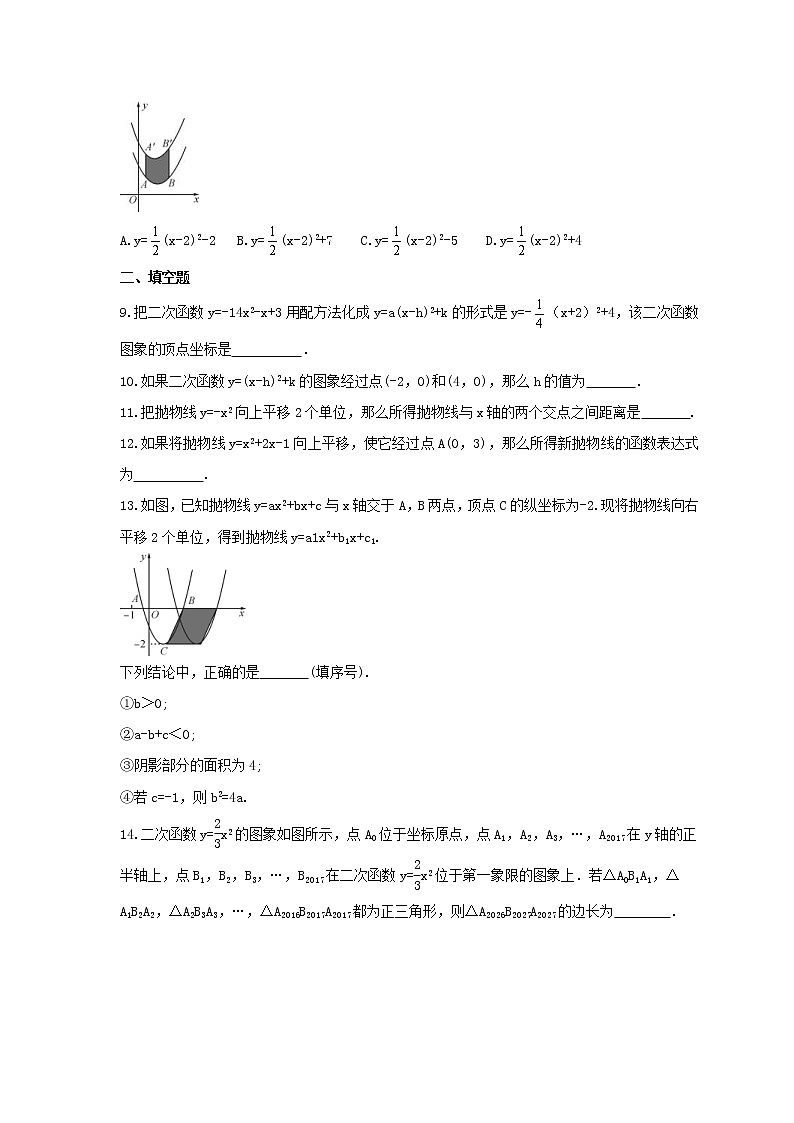 y
A′ B′
A B
O x
A.y=1/2(x-2)²-2 B.y=1/2(x-2)²+7 C.y=1/2(x-2)²-5 D.y=1/2(x-2)²+4
二、填空题
9.把二次函数y=-14x²-x+3用配方法化成y=a(x-h)²+k的形式是y=-1/4（x+2）²+4,该二次函数
图象的顶点坐标是__________.
10.如果二次函数y=(x-h)²+k的图象经过点(-2,0)和(4,0),那么h的值为_______.
11.把抛物线y=-x²向上平移2个单位,那么所得抛物线与x轴的两个交点之间距离是_______.
12.如果将抛物线y=x²+2x-1向上平移,使它经过点A(0,3),那么所得新抛物线的函数表达式
为__________.
13.如图,已知抛物线y=ax²+bx+c与x轴交于A,B两点,顶点C的纵坐标为-2.现将抛物线向右
平移2个单位,得到抛物线y=a1x²+b₁x+c₁.
y
A B
-1 O x
-2
C
下列结论中,正确的是_______(填序号).
①b＞0;
②a-b+c＜0;
③阴影部分的面积为4;
④若c=-1,则b²=4a.
14.二次函数y=2/3x²的图象如图所示，点A₀位于坐标原点，点A₁，A₂，A₃，…，A₂₀₁₇在y轴的正
半轴上，点B₁，B₂，B₃，…，B₂₀₁₇在二次函数y=2/3x²位于第一象限的图象上．若△A₀B₁A₁，△
A₁B₂A₂，△A₂B₃A₃，…，△A₂₀₁₆B₂₀₁₇A₂₀₁₇都为正三角形，则△A₂₀₂₆B₂₀₂₇A₂₀₂₇的边长为________．